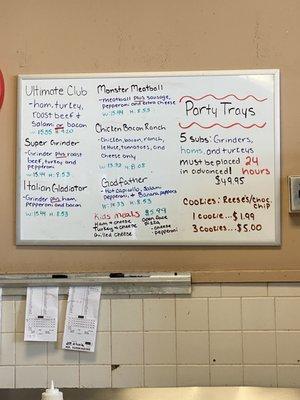 Ultimate Club
-ham, turkey,
roast beef &
Salami or bacon
Super Grinder
-Grinder plus roast
beef, turkey, and
pepperoni
W: 15.49 H: 8.53
Italian Gladiator
-Grinder plus ham,
pepperoni, and bacon
W: 15.49 H: 8.53
Monster Meatball
-meatball plus sausage,
pepperoni and extra cheese
W: 15.49 H: 8.53
Chicken Bacon Ranch
-Chicken, bacon, ranch,
lettuce, tomatoes, and
cheese only
Godfather
-Hot capicollo, Salami,
pepperoni & banana peppers
Kids Meals $5.99
Ham & cheese
Turkey & cheese
Grilled cheese
Open face
-cheese
-pepperoni
Party Trays
5 Subs: Grinders,
hams, and turkeys
must be placed 24 hours
in advanced!
$49.95
Cookies: Reese's/choc. chip
1 cookie...$1.99
3 cookies...$5.00